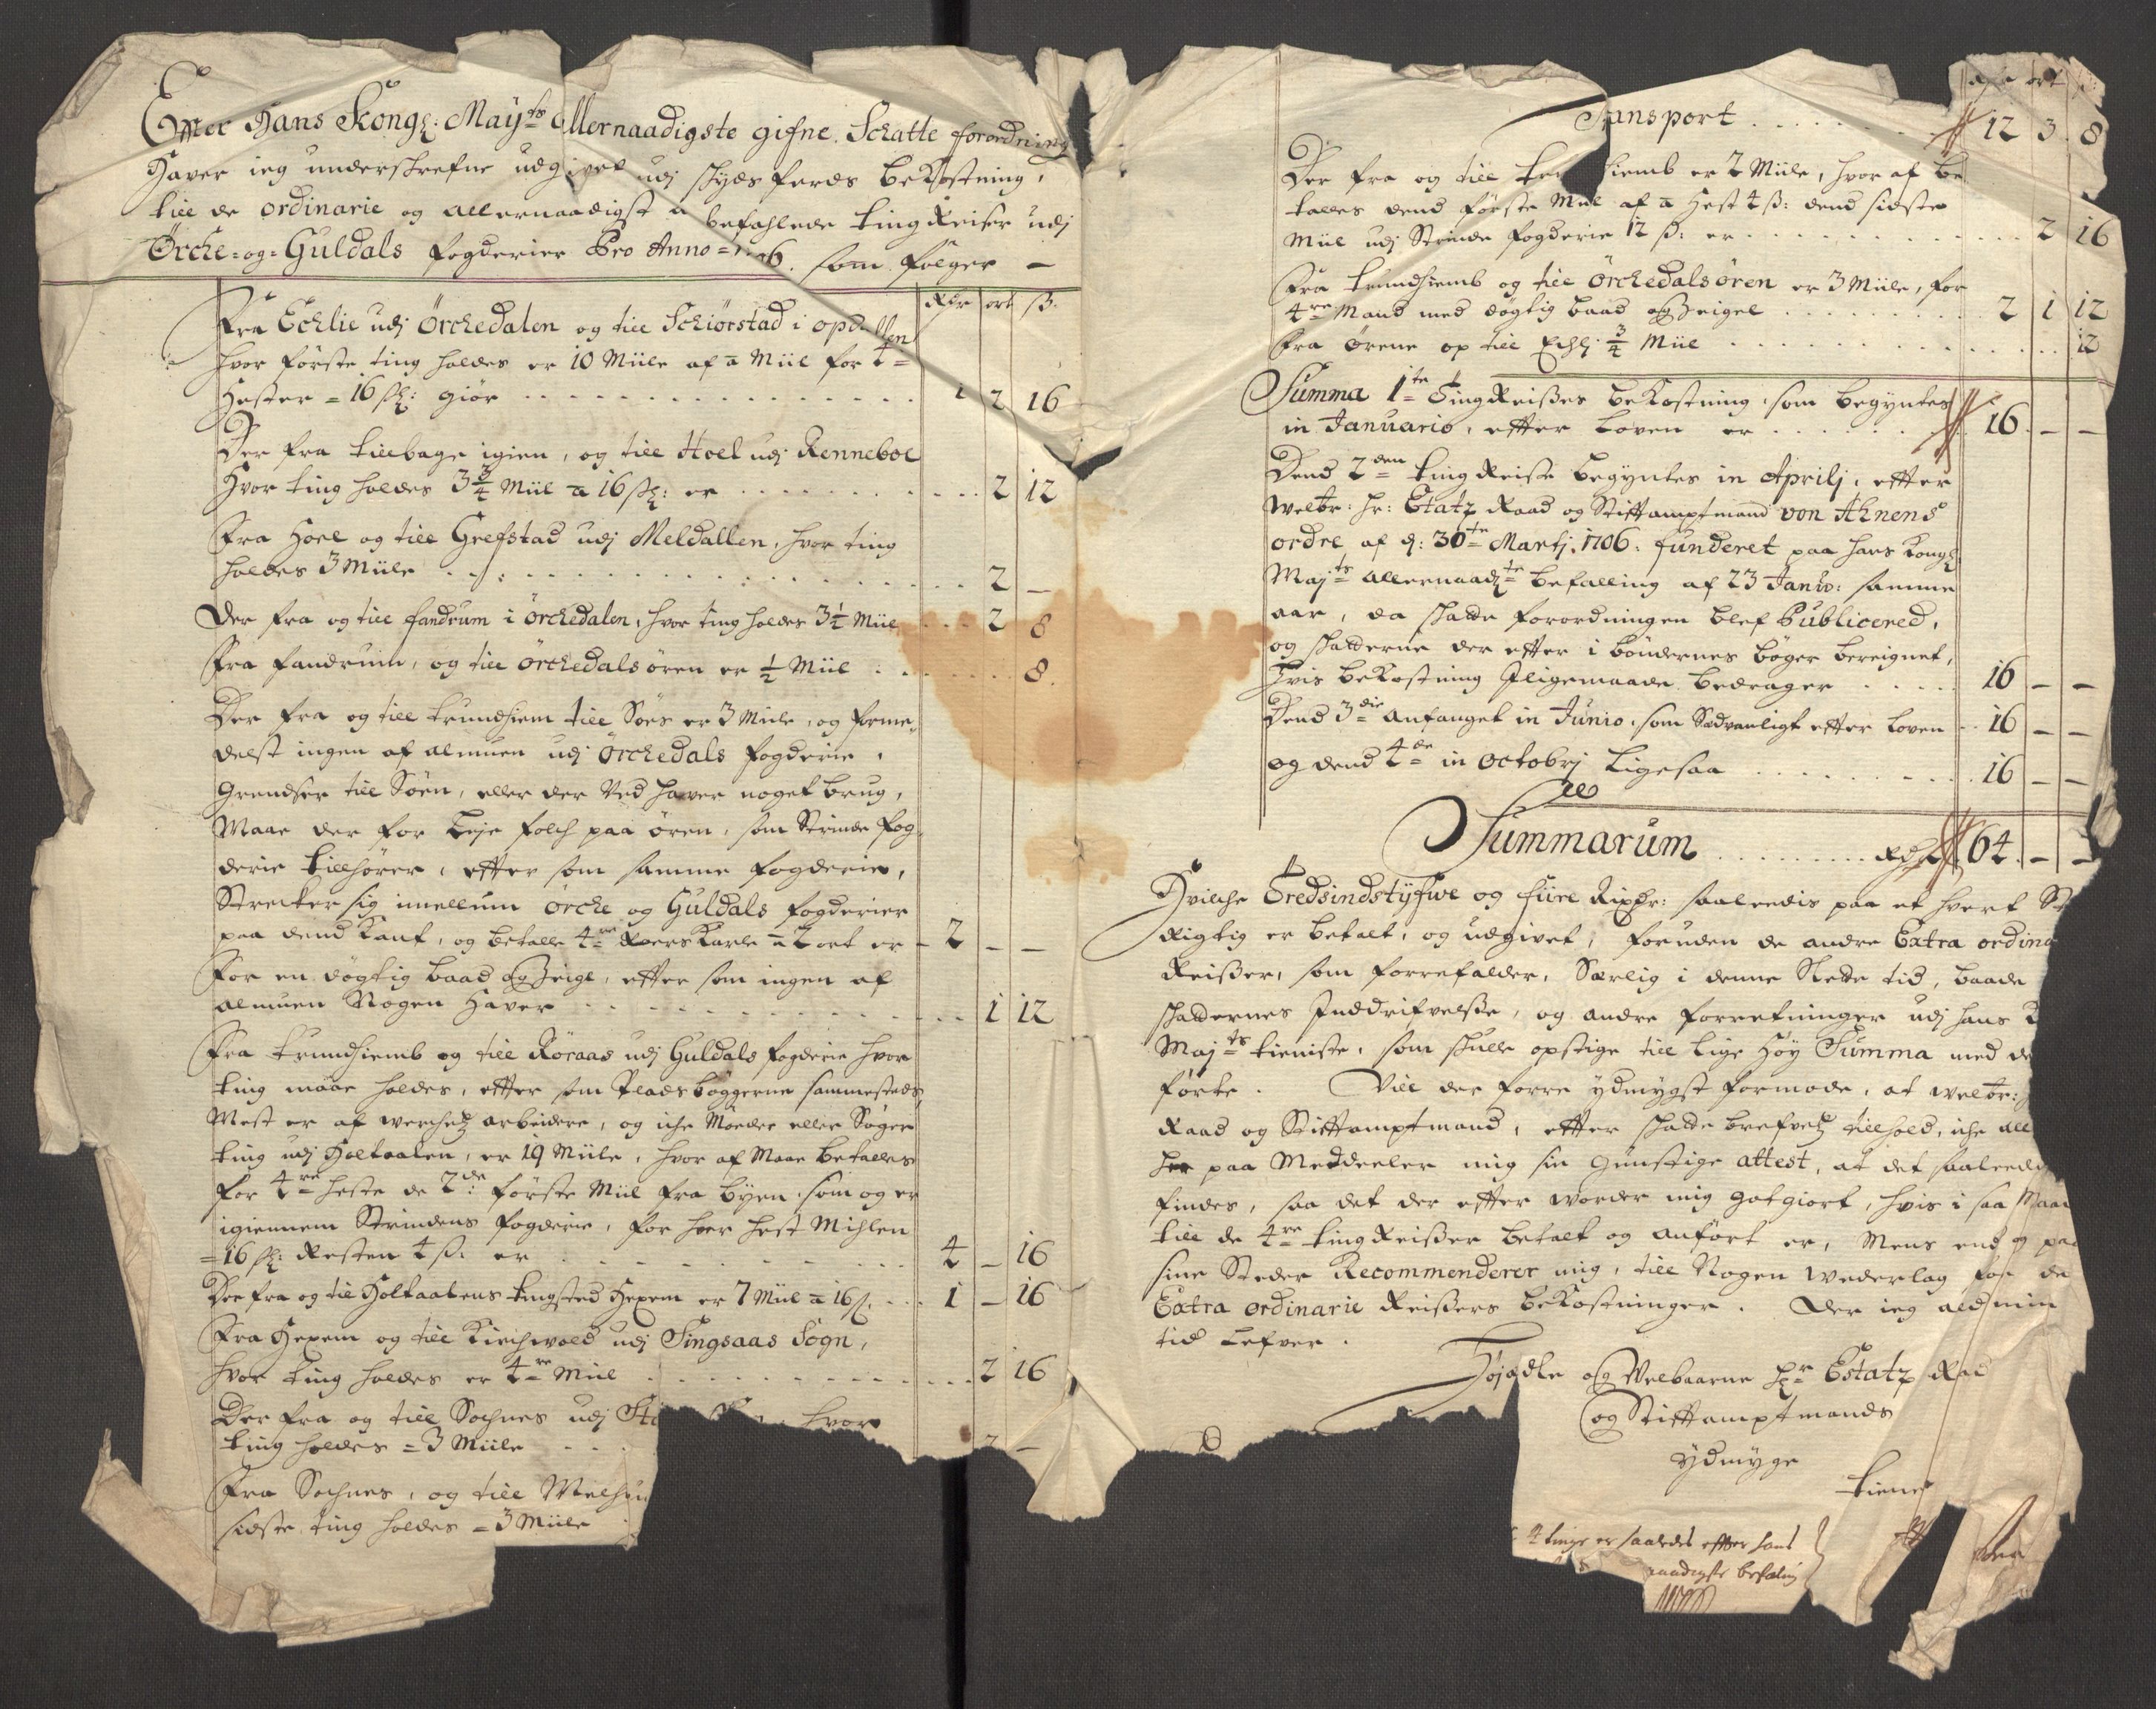 Effter Hans Kongl: Mayts Allernaadigste gifne Schatte forordning
Haver ieg underskrefne udgivet udj skyds ferds bekostning,
till de ordinarie og allernaadigst a befahlede ting Reiser udj
Örche=og=Guldals fogderier Pro Anno = 1706. som fölger –
Rdr ort ß.
Fra Echlie udj Örchedalen og till Schiörstad i opdallen
hvor förste ting holdes er 10 Miile af a Miil for 4
Hester = 16 skl: giör 1 2 16
Der fra tilbage igien, og till Hoel udj Renneboe
Hvor ting holdes 3 3/4 Miil a 16 skl: er 2 12
Fra Hoel og till Grefstad udj Meldallen, hvor ting
holdes 3 Miile 2 –
Der fra og till fandrum i Örchedalen, hvor ting holdes 3 1/2 Miil 2 8
Fra fandrum, og till Örchedals ören er 1/2 Miil 8.
Der fra og till trundhiem till Söes er 3 Miile, og forme,
delst ingen af almuen udj Örchedals fogderie,
Grendser till Söen, eller der ved haver noget brug,
Maae der for Leje folch paa ören, som Strinde fog,
derie tillhörer, effter som samme fogderie,
Strecker sig imellum örche og Guldals fogderier
paa dend Kant, og betalle 4re RoersKarle a 2 ort er – 2 – –
For en dögtig baad og Seigl, effter som ingen af
almuen Nogen haver 1 12
Fra trundhiemb og till Röraas udj Guldals fogderie hvor
ting maae holdes, effter som Pladsböggerne sammesteds,
Mest er af werchetz arbeidere, og iche Möeder eller Söger
ting udj Holtaalen, er 19 Miile, hvor af Maae betalles
for 4re heste de 2de förste Miil fra byen, som og er
igiennem Strindens fogderie, for hver hest Mihlen
= 16 skl: Resten 4 ß: er 4 – 16
Der fra og till Holtaalens tingsted Hexem er 7 Miil a 16 s. 1 – 16
Fra Hexem og till Kirchwold udj Singsaas Sogn,
hvor ting holdes er 4re Miil 2 16
Der fra og till Sochnes udj hvor
ting holdes = 3 Miile 2 –
Fra Sochnes, og till Melhuu
sidste ting holdes = 3 Miile
Rdr ort ß:
Transport 12 3. 8
Der fra og till hiemb er 2 Miile, hvor af be
talles dend förste Miil af a Hest 4 ß: dend sidste
Miil udj Strinde fogderie 12 ß: er 2 16
Fra trundhiemb og till Örchedalsören er 3 Miile, for
4re Mand med dögtig baad og Seigel 2 1 12
Fra örene op till Echlj 3/4 Miil 12
Summa 1te Ting Reißes bekostning, som begyntes
in Januario, effter Loven er 16. – –
Dend 2den ting Reise begyntes in Aprilj, effter
welbr: hr: Etatz Raad og Stiftamptmand von Ahnens
ordre af d: 30te Martj. 1706. funderet paa hans Kongl
Majts allernaadte befalling af 23 Janv: samme
aar, da skatte forordningen blef Publicered,
og skatterne der effter i böndernes böger bereignet,
Hvis bekostning Iligemaade bedrager 16 – –
Dend 3die anfanget in Junio, som Sædvanligt effter Loven 16 – –
og dend 4de in Octobrj Ligesaa 16 – –
Summarum Rdr 64. – –
Hvilche Tredsindstyfwe og fiire Rixdr: saaledis paa et hvert St
Rigtig er betalt, og udgivet, foruden de andre Extra ordina
Reißer, som forrefalder, Særlig i denne Slette tid, baade
skatternes Inddrifvelße, og andre forretninger udj hans K
Majts tieniste, som skulle opstige till Lige Höy Summa med de
förte. Vill der forre ydmygst formode, at welbr:
Raad og Stiftamptmand, effter skatte brefvetz tillhold, iche all
her paa Meddeeler mig sin günstige attest, at det saaledis
findes, saa det der effter worder mig gotgiort, hvis i saa Maa
till de 4re ting Reißer betalt og anfört er, Mens end og paa
sine Steder Recommenderer mig, till Nogen wederlag for de
Extra ordinarie Reißers bekostninger. Der ieg ald min
tid Lefver.
Höjædle og Welbaarne hr Estatz Rad
og Stiftamptmands
ydmyge
tiene
4 tinge er saaledes effter hans
naadigste befaling